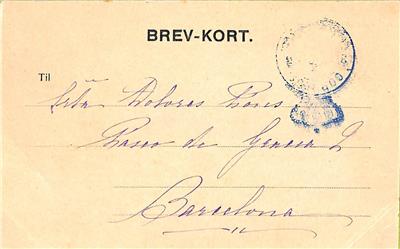 BREV-KORT.
Til
Srta Dolores
Paseo de Gracia 2
Barcelona